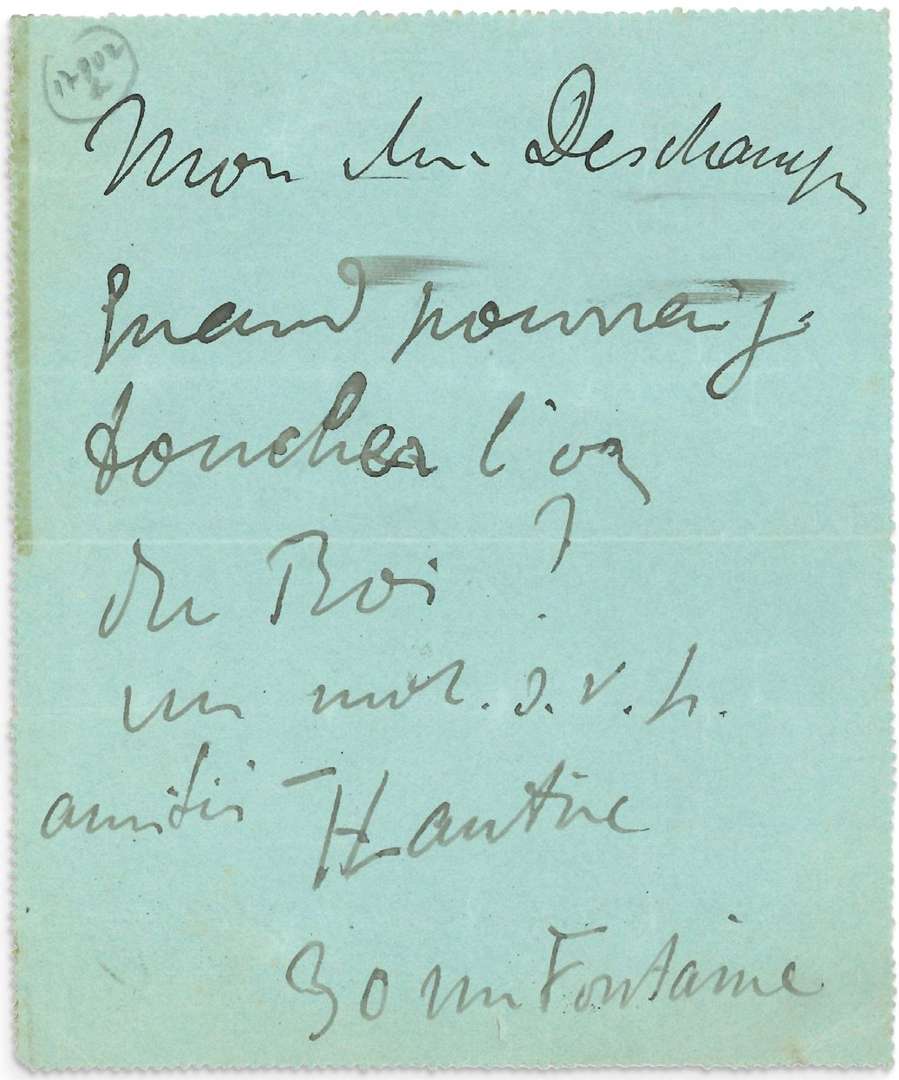 Mon cher Deschamps
Quand pourrai je
toucher l'or
du Roi ?
un mot. s.v.p.
amitiés
30 rue Fontaine